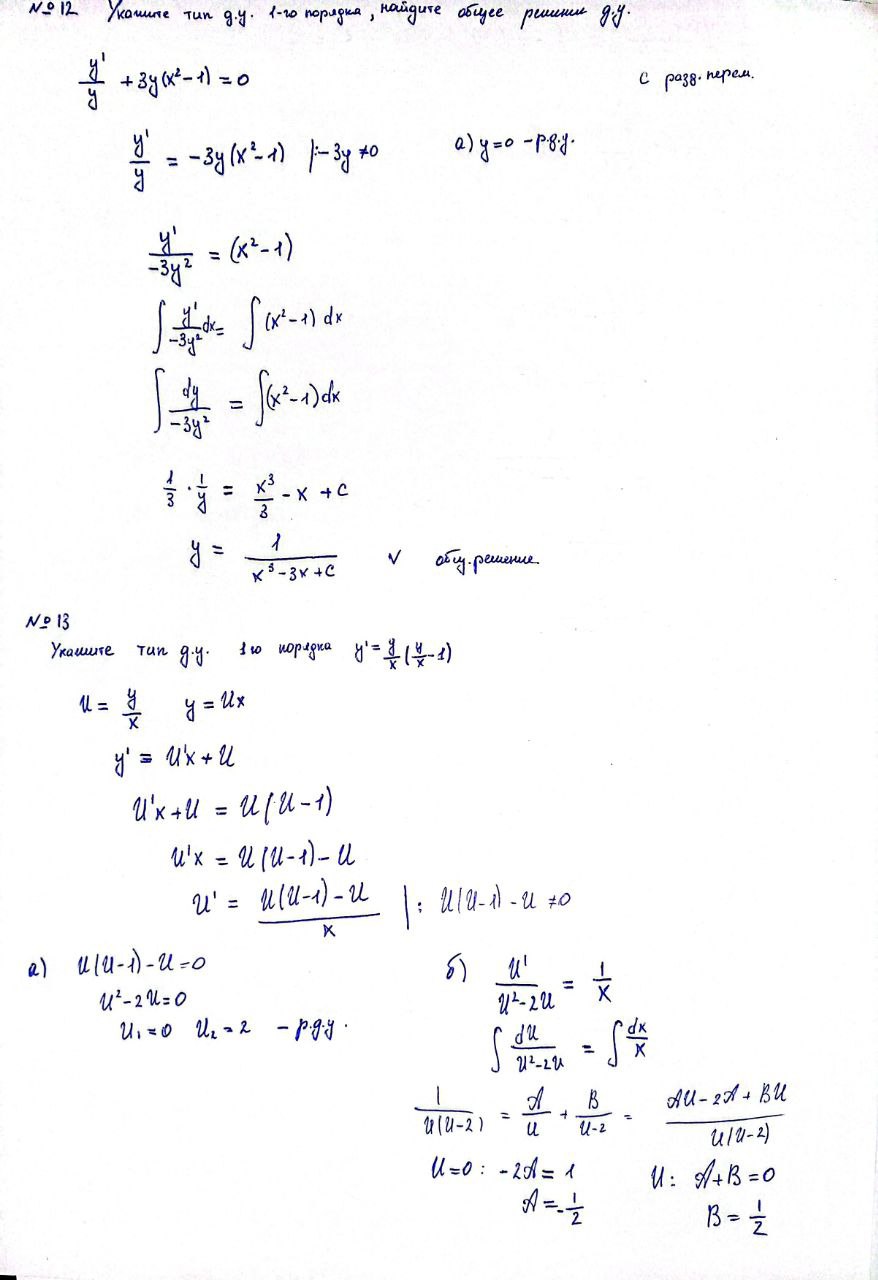 № 12 Укажите тип д.у. 1-го порядка, найдите общее решение д.у.
y'/y + 3y(x² - 1) = 0 с разд. перем.
y'/y = -3y(x² - 1) |: -3y ≠ 0 а) y = 0 - р.д.у.
y'/(-3y²) = (x² - 1)
∫ y'/(-3y²) dx = ∫ (x² - 1) dx
∫ dy/(-3y²) = ∫ (x² - 1) dx
1/3 · 1/y = x³/3 - x + C
y = 1/(x³ - 3x + C) √ общ. решение.
№ 13
Укажите тип д.у. 1го порядка y' = y/x (y/x - 1)
U = y/x y = Ux
y' = U'x + U
U'x + U = U(U - 1)
U'x = U(U - 1) - U
U' = (U(U - 1) - U)/x |: U(U - 1) - U ≠ 0
а) U(U - 1) - U = 0
U² - 2U = 0
U₁ = 0 U₂ = 2 - р.д.у.
б) U'/(U² - 2U) = 1/x
∫ dU/(U² - 2U) = ∫ dx/x
1/(U(U - 2)) = A/U + B/(U - 2) = (AU - 2A + BU)/(U(U - 2))
U = 0 : -2A = 1 U : A + B = 0
A = -1/2 B = 1/2